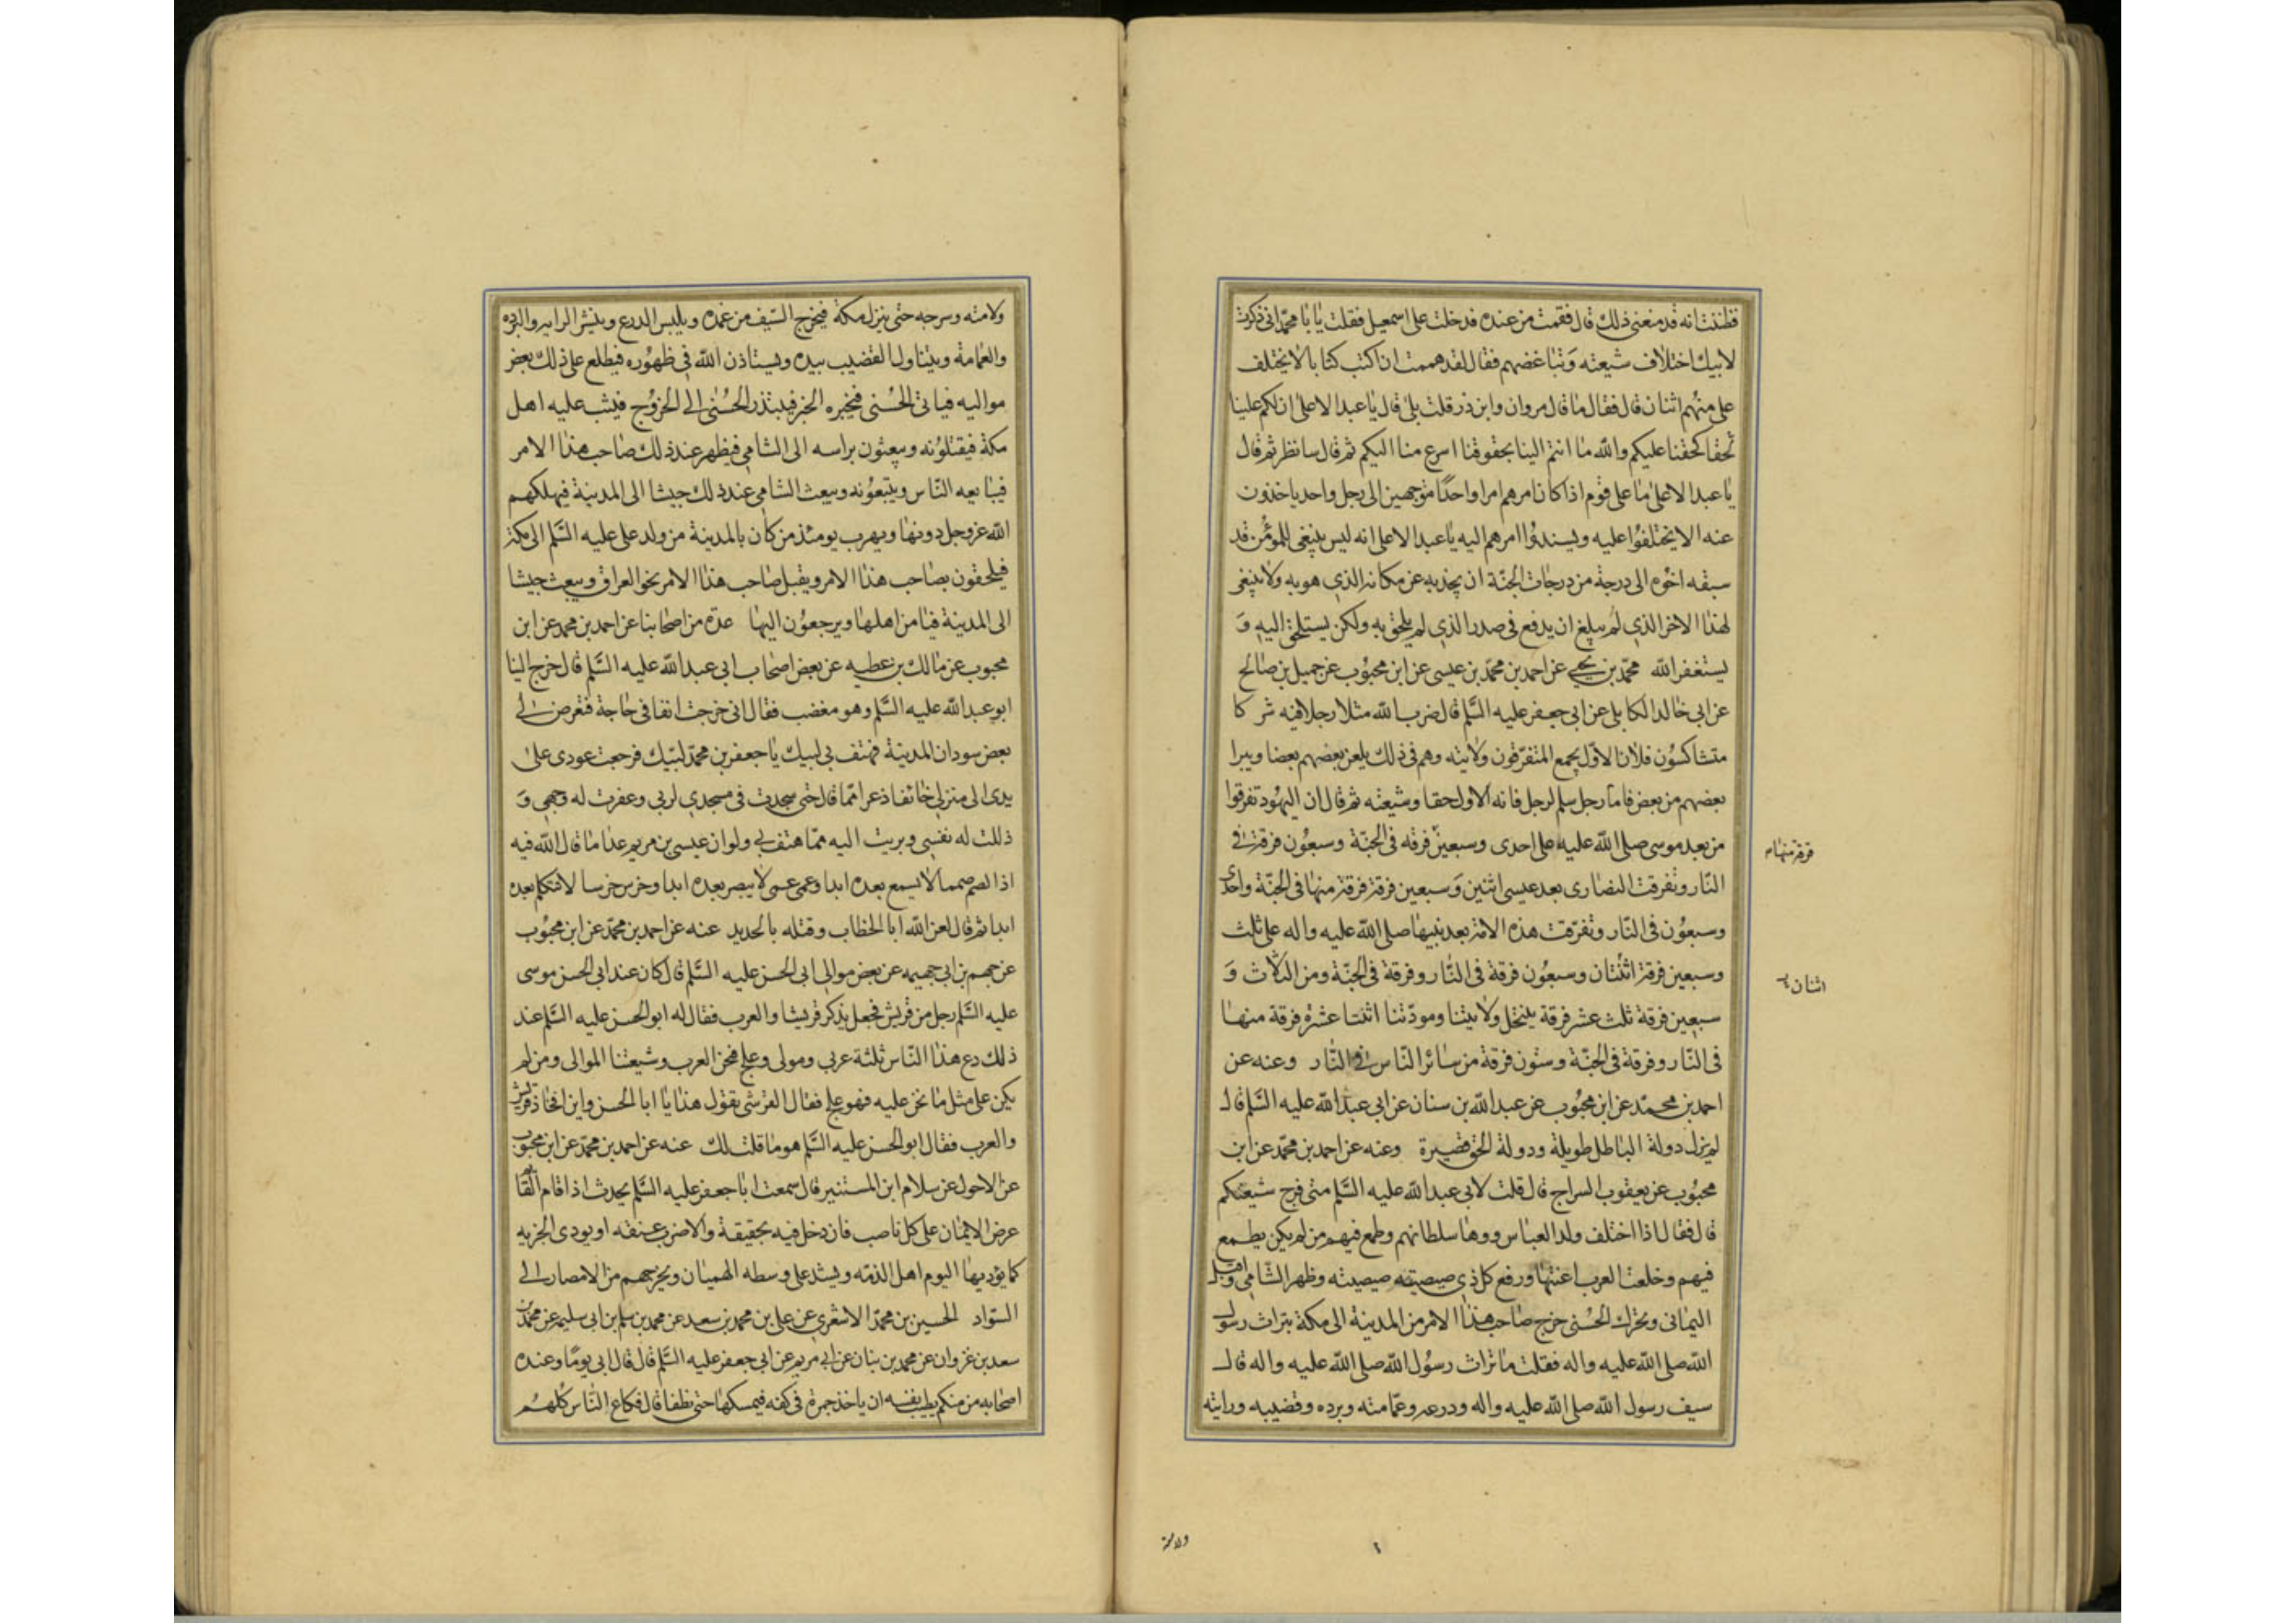 فظننت انه قد منعنى ذلك قال فقمت من عنده فدخلت على اسمعيل فقلت يا با محمد انى ذكرت
لابيك اختلاف شيعته وتباغضهم فقال لقد هممت ان اكتب كتابا لا يختلف
على منهم اثنان قال فقال ما قال مروان وابن ذر قلت بلى قال يا عبد الاعلى ان لكم علينا
لحقا كحقنا عليكم والله ما انتم الينا بحقوقنا اسرع منا اليكم ثم قال سانظر ثم قال
يا عبد الاعلى ما على قوم اذا كان امرهم امرا واحدا متوجهين الى رجل واحد ياخذون
عنه الا يختلفوا عليه ويسندوا امرهم اليه يا عبد الاعلى انه ليس ينبغى للمؤمن قد
سبقه اخوه الى درجة من درجات الجنة ان يجذبه عن مكانه الذي هو به ولا ينبغى
لهذا الاخر الذي لم يبلغ ان يدفع فى صدر الذي لم يلحق به ولكن يستلحق اليه و
يستغفر الله محمد بن يحيى عن احمد بن محمد بن عيسى عن ابن محبوب عن جميل بن صالح
عن ابى خالد الكابلى عن ابى جعفر عليه السلم قال ضرب الله مثلا رجلا فيه شركا
متشاكسون فلان الاول يجمع المتفرقون ولايته وهم فى ذلك يلعن بعضهم بعضا ويبرا
بعضهم من بعض فاما رجل سلم لرجل فانه الاول حقا وشيعته ثم قال ان اليهود تفرقوا
من بعد موسى صلى الله عليه على احدى وسبعين فرقه فى الجنة وسبعون فرقة فى
فرقة منها
النار وتفرقت النصارى بعد عيسى اثنين وسبعين فرقة فرقة منها فى الجنة واحدى
وسبعون فى النار وتفرقت هذه الامة بعد نبيها صلى الله عليه واله على ثلث
وسبعين فرقة اثنتان وسبعون فرقة فى النار وفرقة فى الجنة ومن الثلاث و
اثنان
سبعين فرقة ثلث عشر فرقة ينتحل ولايتنا ومودتنا اثنتا عشره فرقة منها
فى النار وفرقة فى الجنة وستون فرقة من سائر الناس فى النار وعنه عن
احمد بن محمد عن ابن محبوب عن عبد الله بن سنان عن ابى عبد الله عليه السلم قال
لم يزل دولة الباطل طويلة ودولة الحق قصيرة وعنه عن احمد بن محمد عن ابن
محبوب عن يعقوب السراج قال قلت لابى عبد الله عليه السلم متى فرج شيعتكم
قال فقال اذا اختلف ولد العباس ووها سلطانهم وطمع فيهم من لم يكن يطمع
فيهم وخلعت العرب اعنتها ورفع كل ذي صيصيته صيصيته وظهر الشامي واقبل
اليمانى وتحرك الحسنى خرج صاحب هذا الامر من المدينة الى مكة بتراث رسول
الله صلى الله عليه واله فقلت ما تراث رسول الله صلى الله عليه واله قال
سيف رسول الله صلى الله عليه واله ودرعه وعمامته وبرده وقضيبه ورايته
ولامته
ولامته وسرجه حتى ينزل مكة فيخرج السيف من غمده ويلبس الدرع وينشر الرايه والبرده
والعمامة ويتناول القضيب بيده ويستاذن الله فى ظهوره فيطلع على ذلك بعض
مواليه فياتى الحسنى فيخبره الخبر فيبتدر الحسنى الى الخروج فيثب عليه اهل
مكة فيقتلونه ويبعثون براسه الى الشامى فيظهر عند ذلك صاحب هذا الامر
فيبايعه الناس ويتبعونه ويبعث الشامى عند ذلك جيشا الى المدينة فيهلكهم
الله عز وجل دونها ويهرب يومئذ من كان بالمدينة من ولد على عليه السلم الى مكة
فيلحقون بصاحب هذا الامر ويقبل صاحب هذا الامر نحو العراق ويبعث جيشا
الى المدينة فيامن اهلها ويرجعون اليها عدة من اصحابنا عن احمد بن محمد عن ابن
محبوب عن مالك بن عطيه عن بعض اصحاب ابى عبد الله عليه السلم قال خرج الينا
ابو عبد الله عليه السلم وهو مغضب فقال انى خرجت انفا فى حاجة فتعرض لى
بعض سودان المدينة فهتف بى لبيك يا جعفر بن محمد لبيك فرجعت عودى على
بدى الى منزلى خائفا ذعرا مما قال حتى سجدت فى مسجدي لربى وعفرت له وجهى و
ذللت له نفسى وبريت اليه مما هتف بى ولو ان عيسى بن مريم عدا ما قال الله فيه
اذا لصم صمما لا يسمع بعده ابدا وعمى عمى لا يبصر بعده ابدا وخرس خرسا لا يتكلم بعده
ابدا ثم قال لعن الله ابا الخطاب وقتله بالحديد عنه عن احمد بن محمد عن ابن محبوب
عن جهم بن ابى جهيمه عن بعض موالى ابى الحسن عليه السلم قال كان عند ابى الحسن موسى
عليه السلم رجل من قريش فجعل يذكر قريشا والعرب فقال له ابو الحسن عليه السلم عند
ذلك دع هذا الناس ثلثة عربى ومولى وعلج فنحن العرب وشيعتنا الموالى ومن لم
يكن على مثل ما نحن عليه فهو علج فقال القرشى تقول هذا يا ابا الحسن واين افخاذ قريش
والعرب فقال ابو الحسن عليه السلم هو ما قلت لك عنه عن احمد بن محمد عن ابن محبوب
عن الاحول عن سلام ابن المستنير قال سمعت ابا جعفر عليه السلم يحدث اذا قام القائم
عرض الايمان على كل ناصب فان دخل فيه بحقيقة والا ضرب عنقه او يودى الجزيه
كما يؤديها اليوم اهل الذمه ويشد على وسطه الهميان ويخرجهم من الامصار الى
السواد الحسين بن محمد الاشعري عن على بن محمد بن سعيد عن محمد بن سلم بن ابى سليم عن محمد بن
سعد بن غزوان عن محمد بن بنان عن ابى مريم عن ابى جعفر عليه السلم قال قال ابى يوما وعنده
اصحابه من منكم يطيب نفسه ان ياخذ جمرة فى كفه فيمسكها حتى تطفا قال فكاع الناس كلهم